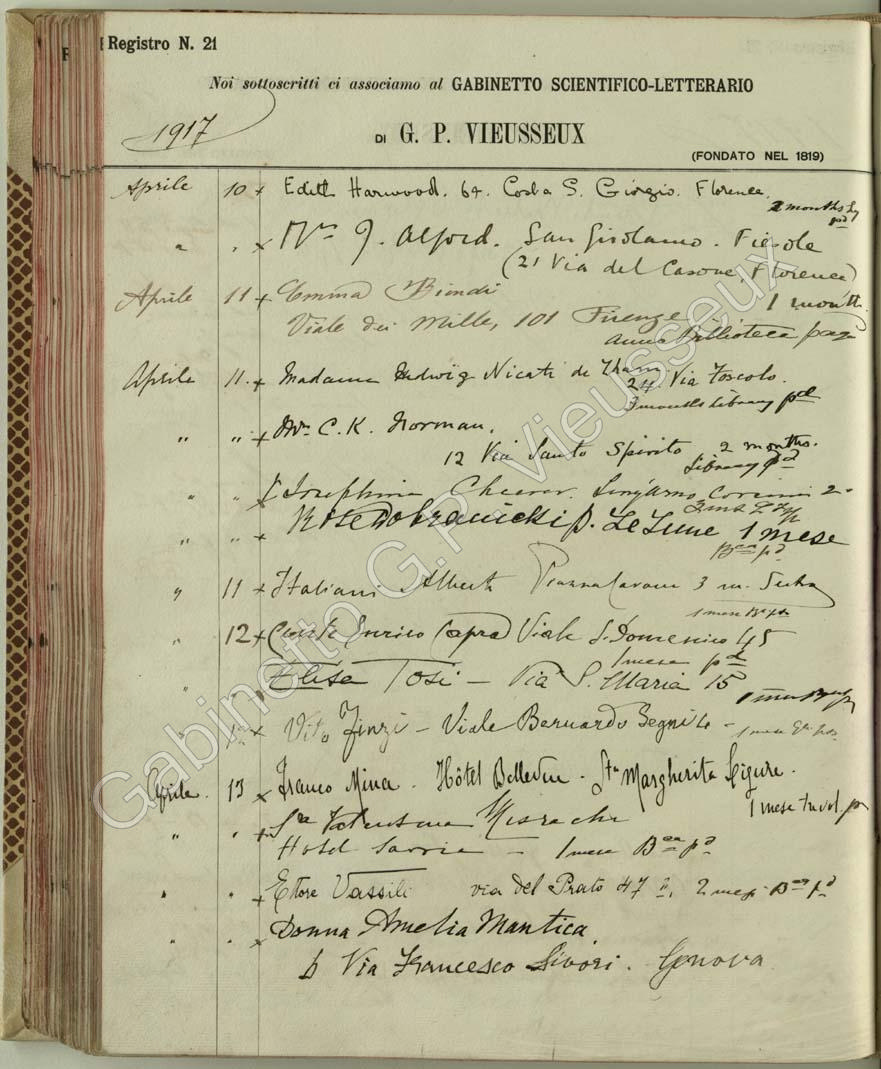 Registro N. 21
Noi sottoscritti ci associamo al GABINETTO SCIENTIFICO-LETTERARIO
1917
DI G. P. VIEUSSEUX
(FONDATO NEL 1819)
Aprile 10 x Edith Harwood. 64. Costa S. Giorgio. Florence.
2 months
" " x J. Alford. San Girolamo. Fiesole
(21 Via del Casone, Florence)
Aprile 11 x Emma Biondi 1 month
Viale dei Mille, 101 Firenze
Biblioteca
Aprile 11. x Madame Hedwig Nicati de
24 Via Foscolo.
3 months library pd
" " x Mrs C. K. Norman.
12 Via Santo Spirito 2 months.
Library pd
" " x Josephine Lungarno Corsini 2
" " x 1 mese
pd
" 11 x Italiani Piazza Cavour 3
1 mese
" 12 x Enrico Viale S. Domenico 45
1 mese pd
" " Elisa Tosi – Via S. Maria 15
1 mese
" x Vito Finzi – Viale Bernardo Segni
1 mese
Aprile. 13 x Franco Mina. Hôtel Bellevue. Sta Margherita Ligure.
1 mese
" " x Misrachi
Hotel – 1 mese Bca pd
" " x Ettore Vassili via del Prato 47 2 mesi Bca pd
" " x Donna Amelia Mantica
Via Francesco Sivori. Genova
Gabinetto G.P. Vieusseux